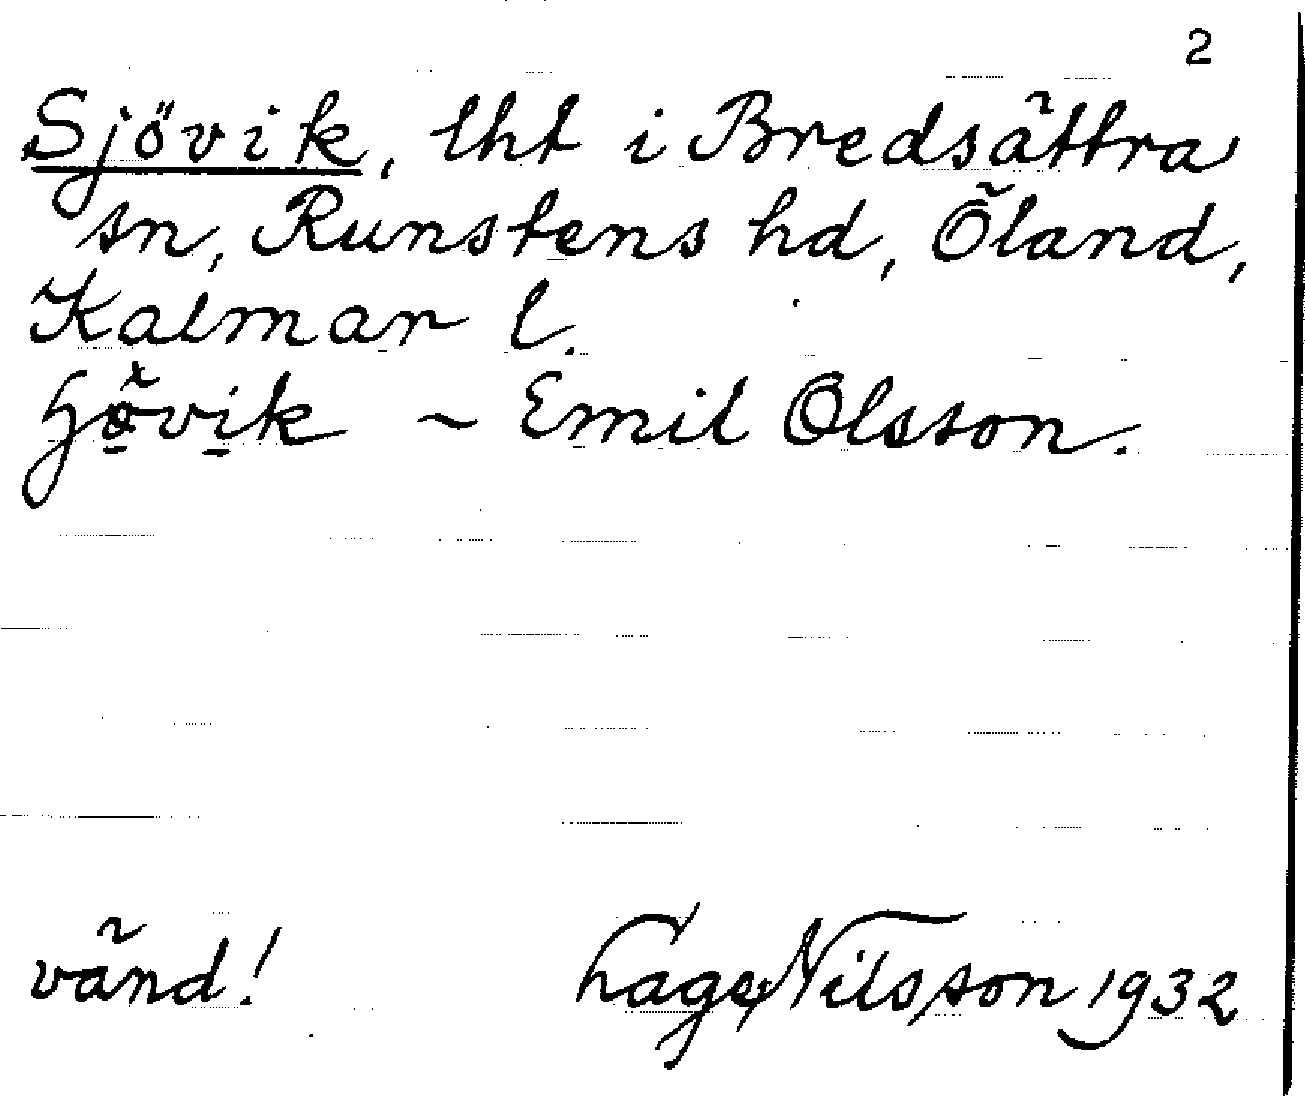 2
Sjövik, lht i Bredsättra
sn, Runstens hd, Öland,
Kalmar l.
ɧö̱vi̱k ~ Emil Olsson.
vänd! Lage Nilsson 1932